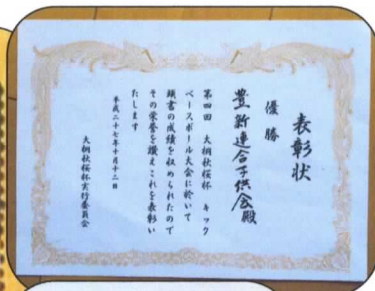 表彰状
優勝
豊新連合子供会殿
第四回 大桐秋桜杯 キック
ベースボール大会に於いて
頭書の成績を収められたので
その栄誉を讃えこれを表彰い
たします
平成二十七年十月十二日
大桐秋桜杯実行委員会